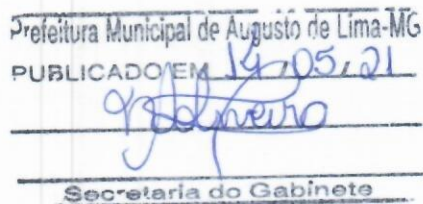 Prefeitura Municipal de Augusto de Lima-MG
PUBLICADO EM 14/05/21
Secretaria do Gabinete